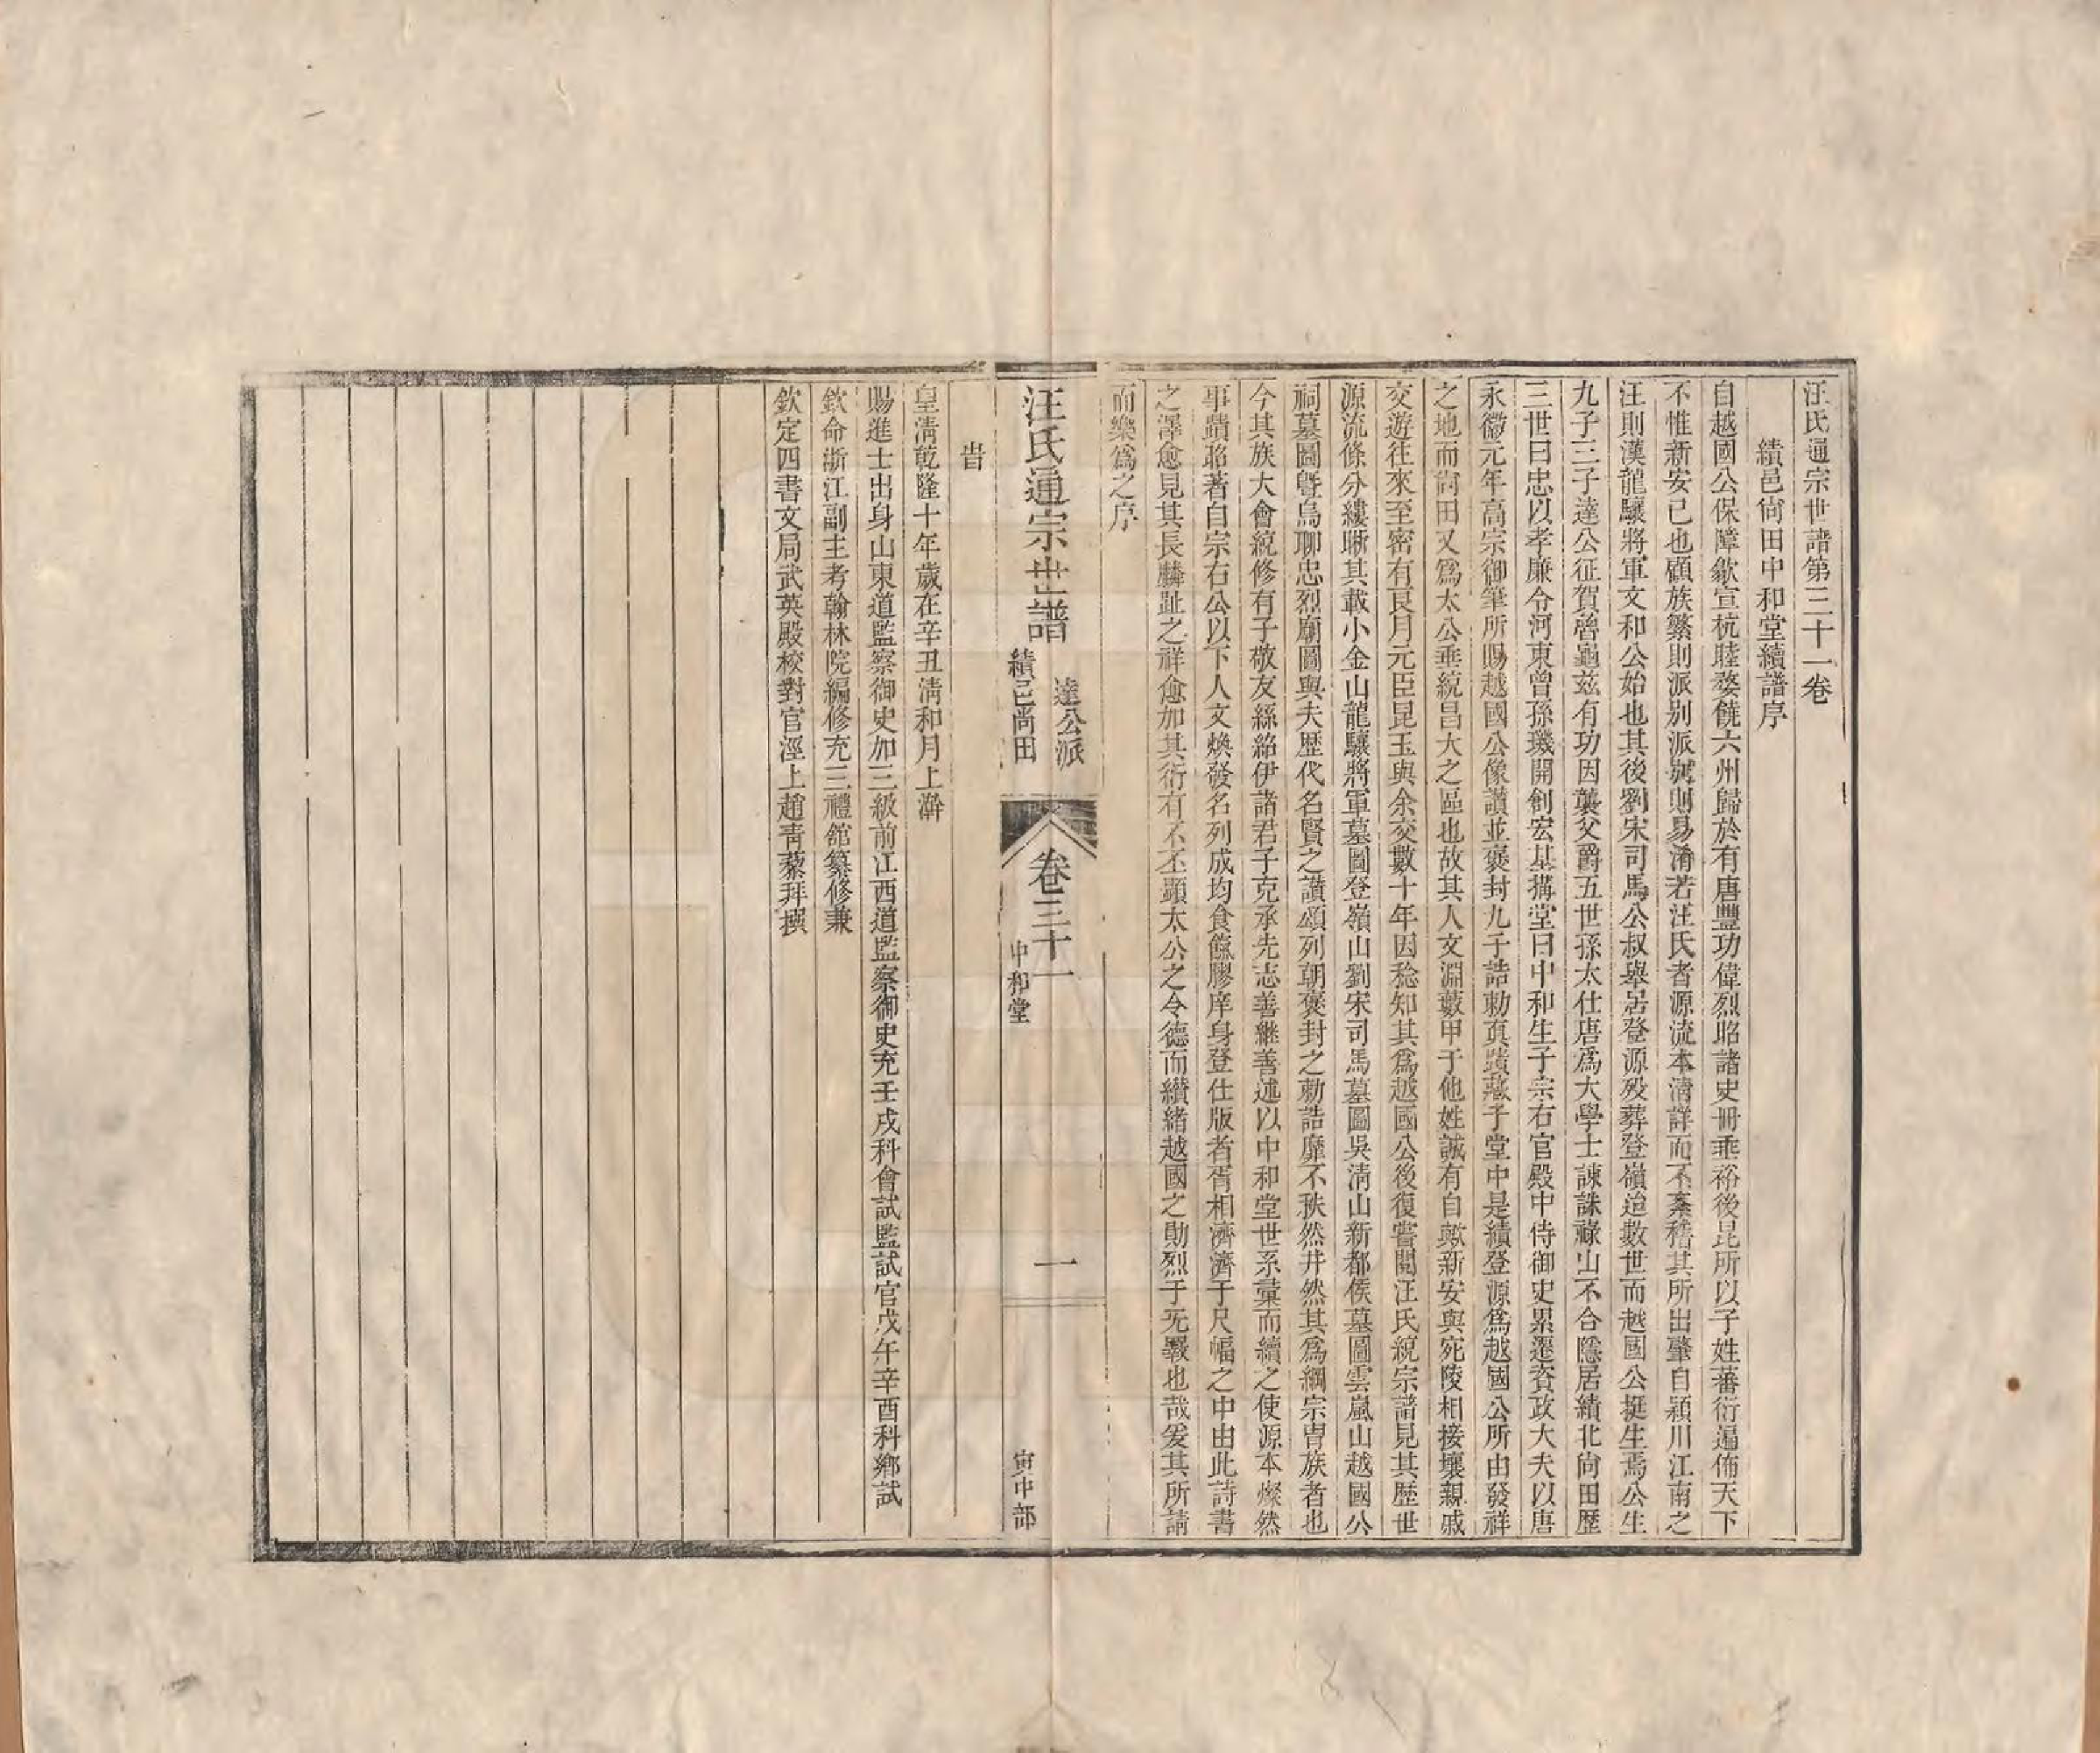 汪氏通宗世譜第三十一卷
績邑尙田中和堂續譜序
自越國公保障歙宣杭睦婺饒六州歸於有唐豐功偉烈昭諸史冊垂裕後昆所以子姓蕃衍遍佈天下
不惟新安已也顧族繁則派别派别則易淆若汪氏者源流本清詳而不紊稽其所出肇自潁川江南之
汪則漢龍驤將軍文和公始也其後劉宋司馬公叔舉居登源殁葬登嶺迨數世而越國公挺生焉公生
九子三子達公征賀魯龜兹有功因襲父爵五世孫太仕唐爲大學士諫誅祿山不合隱居績北尙田歷
三世曰忠以孝廉令河東曾孫璣開創宏基搆堂曰中和生子宗右官殿中侍御史累遷資政大夫以唐
永徽元年高宗御筆所賜越國公像讃並褒封九子誥勅真蹟藏于堂中是績登源爲越國公所由發祥
之地而尙田又爲太公垂統昌大之區也故其人文淵藪甲于他姓誠有自歟新安與宛陵相接壤親戚
交遊往來至密有良月元臣昆玉與余交數十年因稔知其爲越國公後復嘗閲汪氏統宗譜見其歷世
源流條分縷晰其載小金山龍驤將軍墓圖登嶺山劉宋司馬墓圖吳清山新都侯墓圖雲嵐山越國公
祠墓圖曁烏聊忠烈廟圖與夫歷代名賢之讃頌列朝褒封之勅誥靡不秩然井然其爲綱宗胄族者也
今其族大會統修有子敬友絲紹伊諸君子克承先志善繼善述以中和堂世系彙而續之使源本燦然
事蹟昭著自宗右公以下人文煥發名列成均食餼膠庠身登仕版者胥相濟濟于尺幅之中由此詩書
之澤愈見其長麟趾之祥愈加其衍有不丕顯太公之令德而纘緒越國之勛烈于无斁也哉爰其所請
而樂爲之序
汪氏通宗世譜
達公派
績邑尙田
卷三十一
中和堂
一
寅中部
旹
皇淸乾隆十年歲在辛丑淸和月上澣
賜進士出身山東道監察御史加三級前江西道監察御史充壬戌科會試監試官戊午辛酉科鄉試
欽命浙江副主考翰林院編修充三禮舘纂修兼
欽定四書文局武英殿校對官涇上趙靑藜拜撰